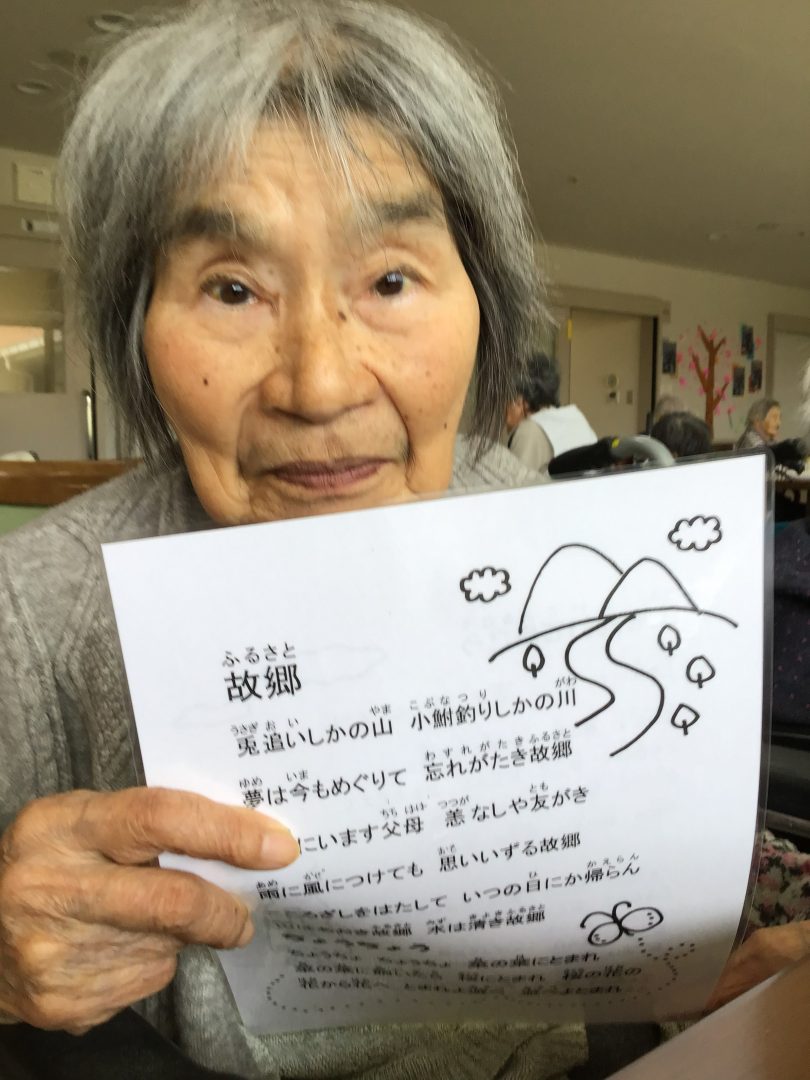 ふるさと
故郷
うさぎ お い やま こぶなつり がわ
兎追いしかの山 小鮒釣りしかの川
ゆめ いま わすれがたきふるさと
夢は今もめぐりて 忘れがたき故郷
ちち はは つつが とも
にいます父母 恙なしや友がき
あめ かぜ おも
雨に風につけても 思いいずる故郷
ひ かえらん
ろざしをはたして いつの日にか帰らん
みず きよきふるさと
故郷 水は清き故郷
ちょうちょう
ちょうちょ ちょうちょ 菜の葉にとまれ
菜の葉に あいたら 桜にとまれ 桜の花の
花から花へ とまれよ遊べ 遊べよとまれ